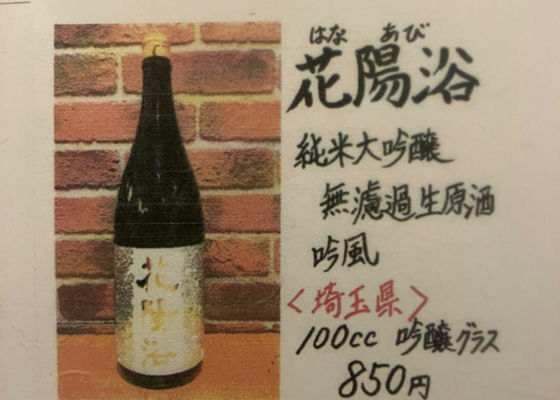 はな あび
花陽浴
純米大吟醸
無濾過生原酒
吟風
〈埼玉県〉
100cc 吟醸グラス
850円
花陽浴